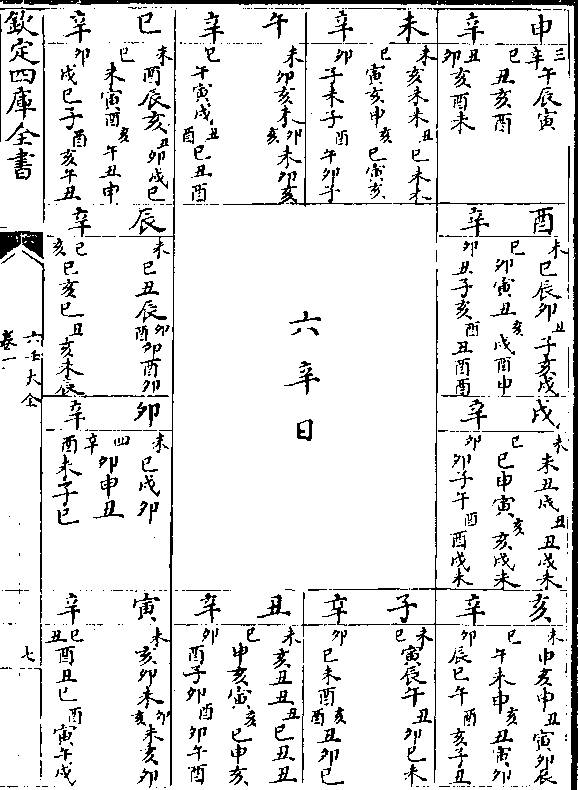 申 辛
三辛午辰寅
巳丑亥酉
丑卯亥酉未
未 辛
未亥未未丑巳未未
巳寅亥申亥巳寅亥
卯子未子酉午卯子
午 辛
未卯亥未卯亥未卯亥
巳午寅戌丑酉巳丑酉
巳 辛
未酉辰亥丑卯戌巳
巳未寅酉亥午丑申
卯戌巳子酉亥午丑
酉 辛
未巳辰卯丑子亥戌
巳卯寅丑亥戌酉申
卯丑子亥酉丑酉酉
戌 辛
未未丑戌丑丑戌未
巳巳申寅亥亥戌未
卯卯子午酉酉戌未
六辛日
辰 辛
未巳丑辰卯酉卯酉卯
巳亥巳亥巳丑亥未辰
卯 辛
未巳戌卯
四辛卯申丑
酉未子巳
亥 辛
未申亥申丑寅卯辰
巳午未申亥丑寅卯
卯辰巳午酉亥子丑
子 辛
未巳寅辰午丑卯巳未
卯巳未酉亥酉丑卯巳
丑 辛
未亥丑丑丑巳丑丑
巳申亥寅亥巳申亥
卯酉子卯酉卯午酉
寅 辛
未亥卯未卯亥未亥卯
巳丑酉丑巳酉寅午戌
欽定四庫全書
六壬大全
卷一
七